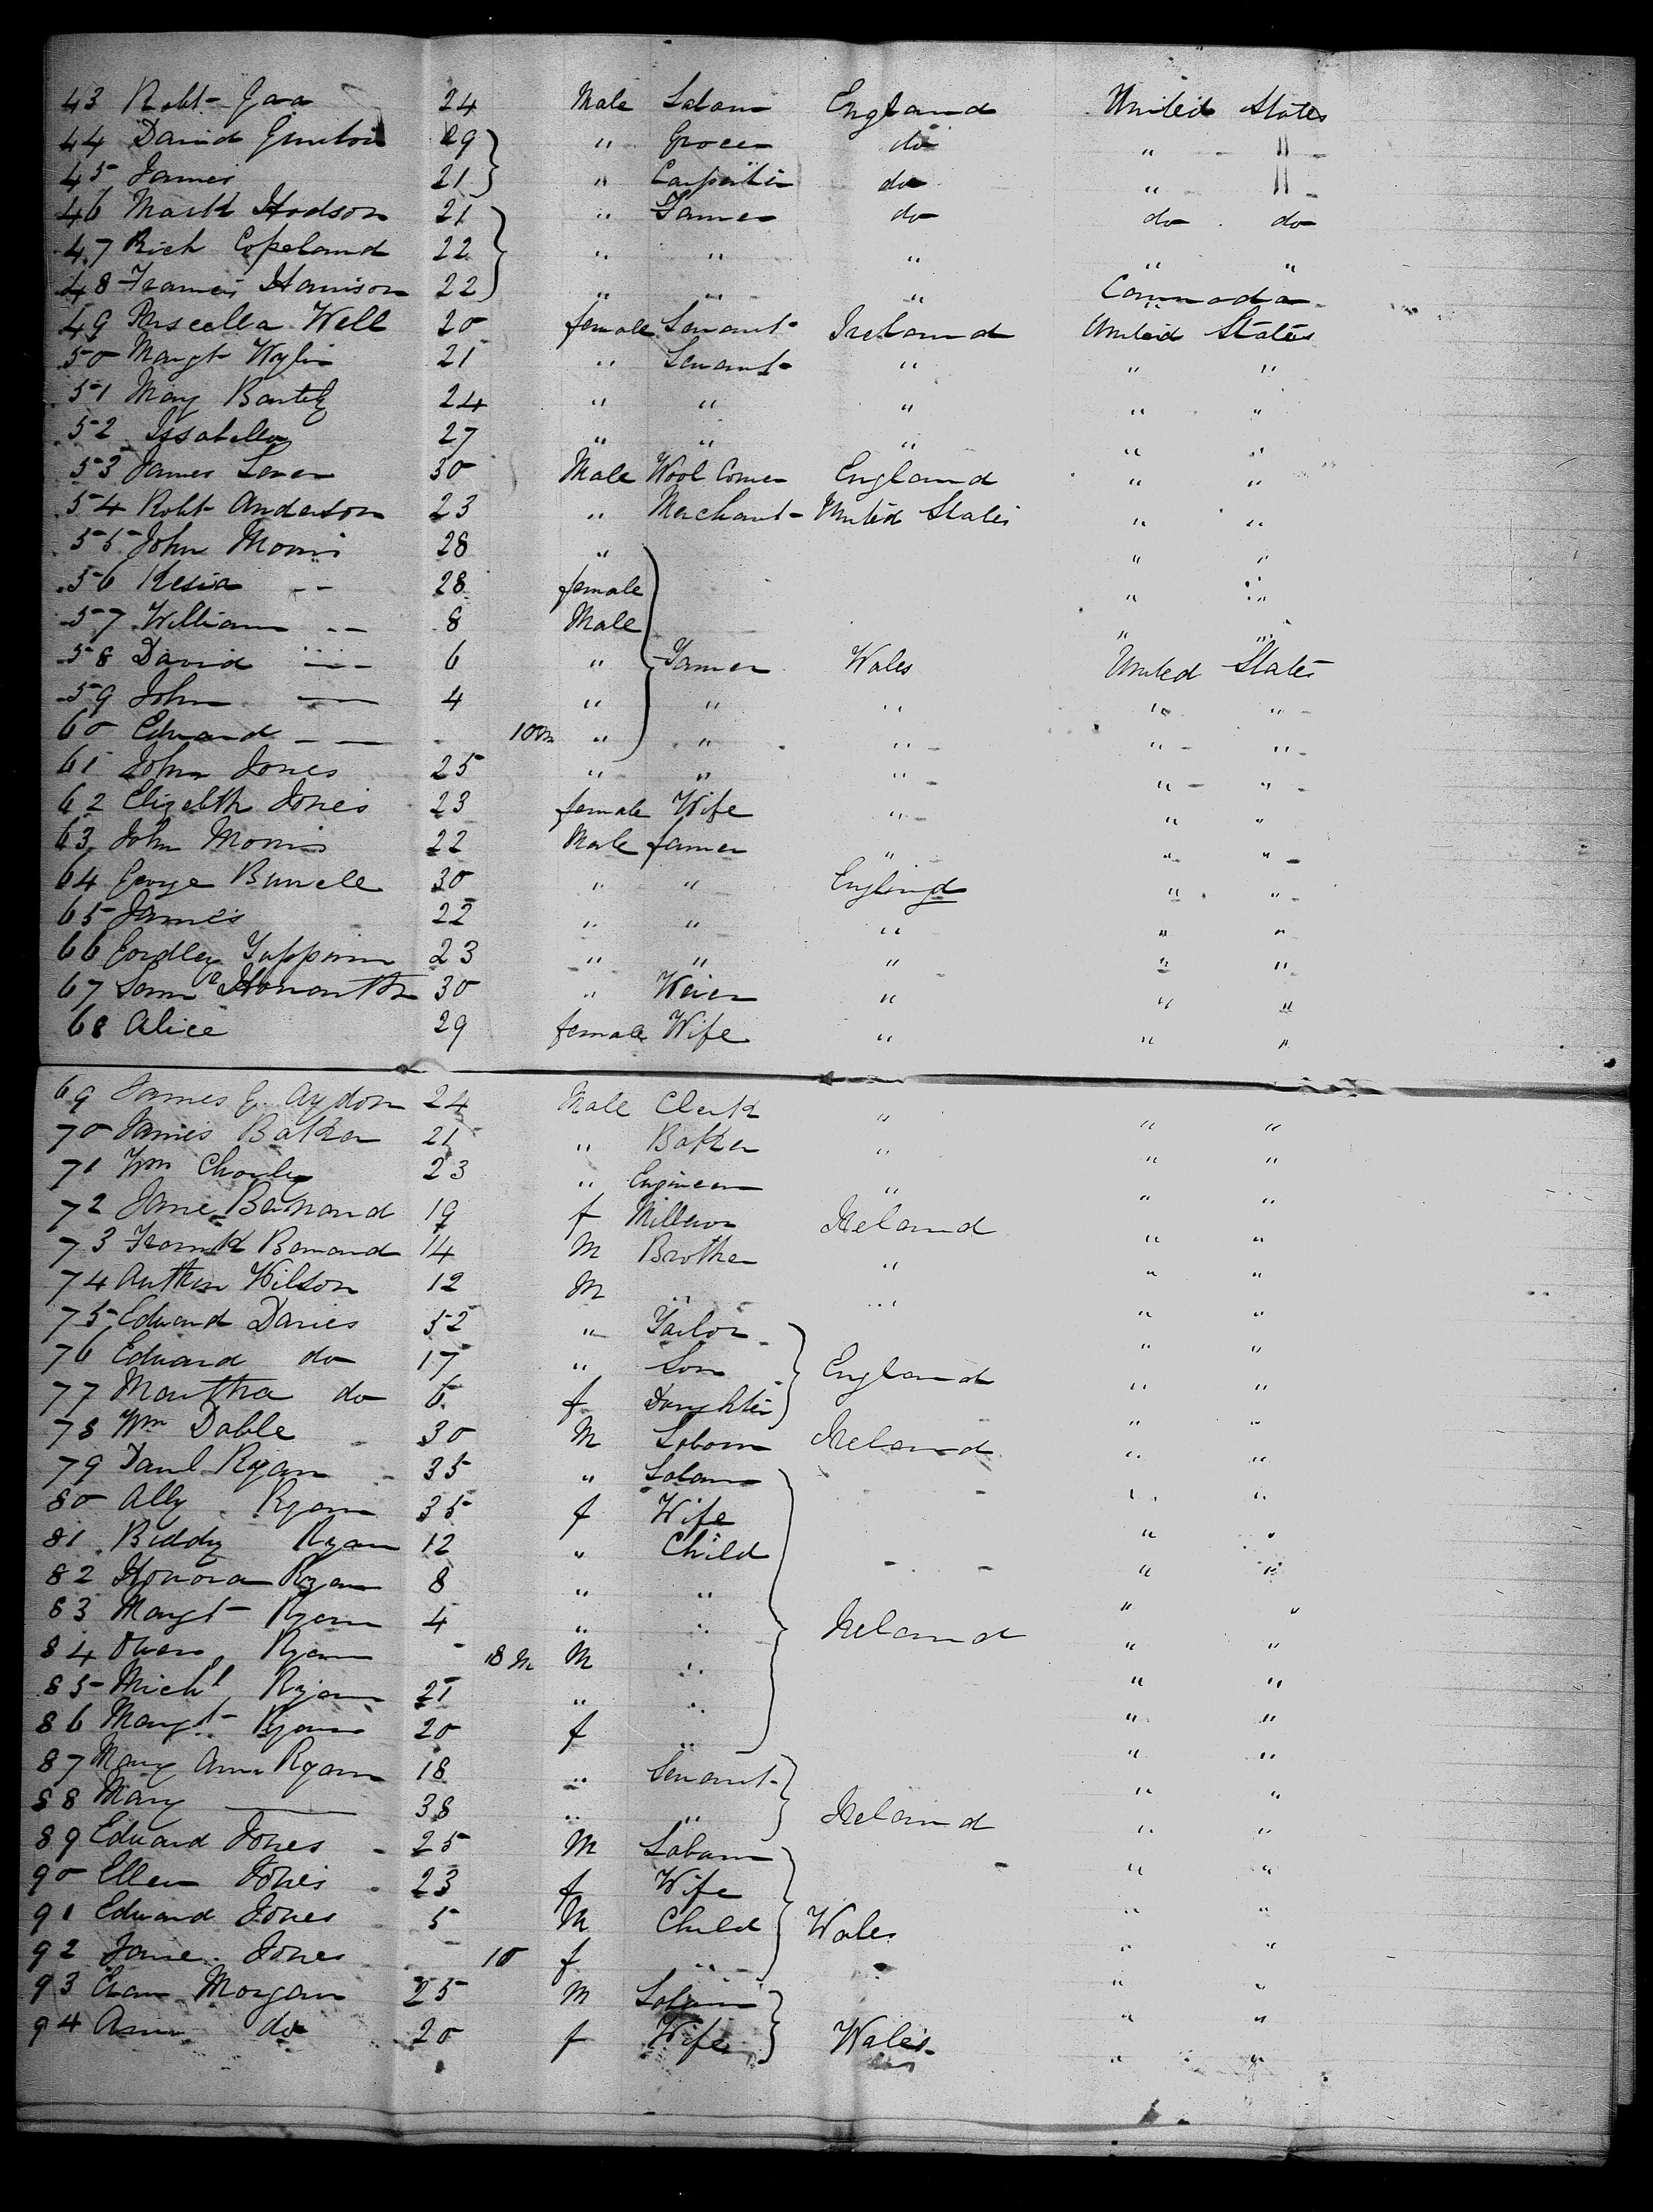 43 Robt Gaa 24 Male Labour England United States
44 David 29 " Grocer do " "
45 James 21 " Carpenter do " "
46 Mark Hodson 21 " Farmer do do do
47 Rich Copeland 22 " " " " "
48 Francis Harrison 22 " " " Cannada
49 Priscella Well 20 female Servant Ireland United States
50 Margt Wylie 21 " Servant " " "
51 Mary 24 " " " " "
52 Issabella 27 " " " " "
53 James Laver 30 Male Wool Comer England " "
54 Robt Anderson 23 " Merchant United States " "
55 John Morris 28 " " "
56 Kesia -- 28 female " "
57 William -- 8 Male " "
58 David -- 6 " Farmer Wales United States
59 John — 4 " " " " "
60 Edward — — 10m " " " " "
61 John Jones 25 " " " " "
62 Elizabth Jones 23 female Wife " " "
63 John Morris 22 Male farmer " " "
64 George Burnell 30 " " England " "
65 James 22 " " " " "
66 23 " " " " "
67 Saml Howarth 30 " " " "
68 Alice 29 female Wife " " "
69 James G. Aydon 24 Male Clerk " " "
70 James Baker 21 " Baker " " "
71 Wm Chorley 23 " Engineer " " "
72 Jane Barnard 19 f Ireland " "
73 Frank Barnard 14 M Brother " " "
74 Arthur Wilson 12 M " " " "
75 Edward Davies 52 " Tailor " "
76 Edward do 17 " Son England " "
77 Martha do 6 f Daughter " "
78 Wm Dable 30 M Labour Ireland " "
79 Danl Ryan 35 " Labour " "
80 Ally Ryan 35 f Wife " "
81 Biddy Ryan 12 " Child " "
82 Honora Ryan 8 " " " "
83 Margt Ryan 4 " " Ireland " "
84 Owen Ryan - 18 m M " " "
85 Michl Ryan 21 " " " "
86 Margt Ryan 20 f " " "
87 Mary Ann Ryan 18 " Servant " "
88 Mary — 38 " " Ireland " "
89 Edward Jones 25 M Labour " "
90 Ellen Jones 23 f Wife " "
91 Edward Jones 5 M Child Wales " "
92 Jane Jones - 10 f " " "
93 Evan Morgan 25 M Labour " "
94 Ann do 20 f Wife Wales " "